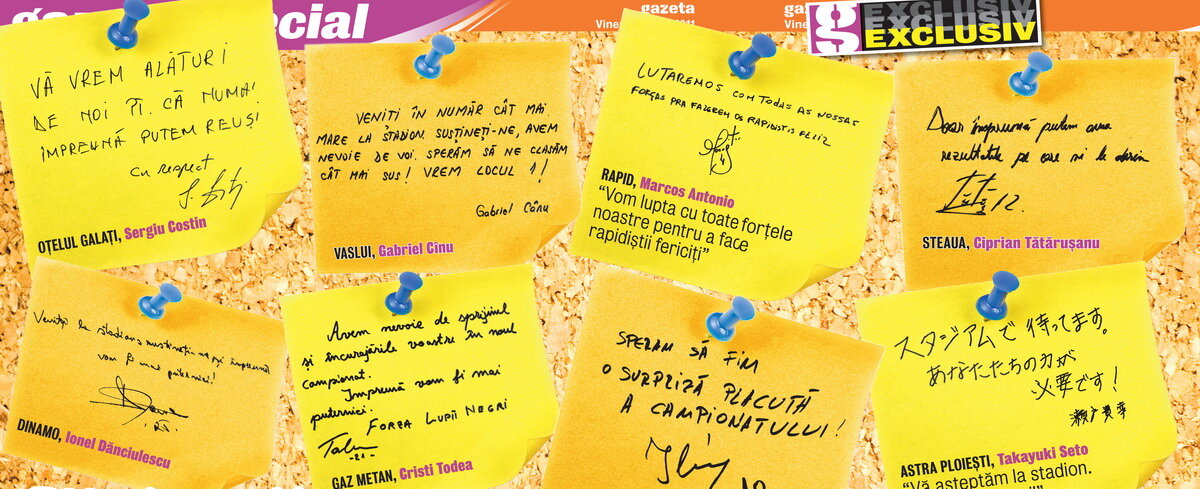 gazeta
gazeta special
Vine 2011
EXCLUSIV
EXCLUSIV
VĂ VREM ALĂTURI
DE NOI PT. CĂ NUMAI
ÎMPREUNĂ PUTEM REUȘI
cu respect
OȚELUL GALAȚI, Sergiu Costin
VENITI ÎN NUMĂR CÂT MAI
MARE LA STADION. SUSȚINEȚI-NE, AVEM
NEVOIE DE VOI. SPERĂM SĂ NE CLASĂM
CÂT MAI SUS! VREM LOCUL 1!
Gabriel Cânu
VASLUI, Gabriel Cînu
LUTAREMOS COM TODAS AS NOSSAS
FORÇAS PRA FAZEREM OS RAPIDISTIS FELIZ
RAPID, Marcos Antonio
“Vom lupta cu toate forțele
noastre pentru a face
rapidiștii fericiți”
Doar împreună putem avea
rezultatele pe care ni le dorim
12.
STEAUA, Ciprian Tătărușanu
Veniți la stadion
vom fi mai puternici!
DINAMO, Ionel Dănciulescu
Avem nevoie de sprijinul
și încurajările voastre în noul
campionat.
Împreună vom fi mai
puternici.
FORZA LUPII NEGRI
-21-
GAZ METAN, Cristi Todea
SPERAM SĂ FIM
O SURPRIZĂ PLACUTĂ
A CAMPIONATULUI!
スタジアムで待ってます。
あなたたちの力が
必要です!
瀬戸貴幸
ASTRA PLOIEȘTI, Takayuki Seto
“Vă așteptăm la stadion.